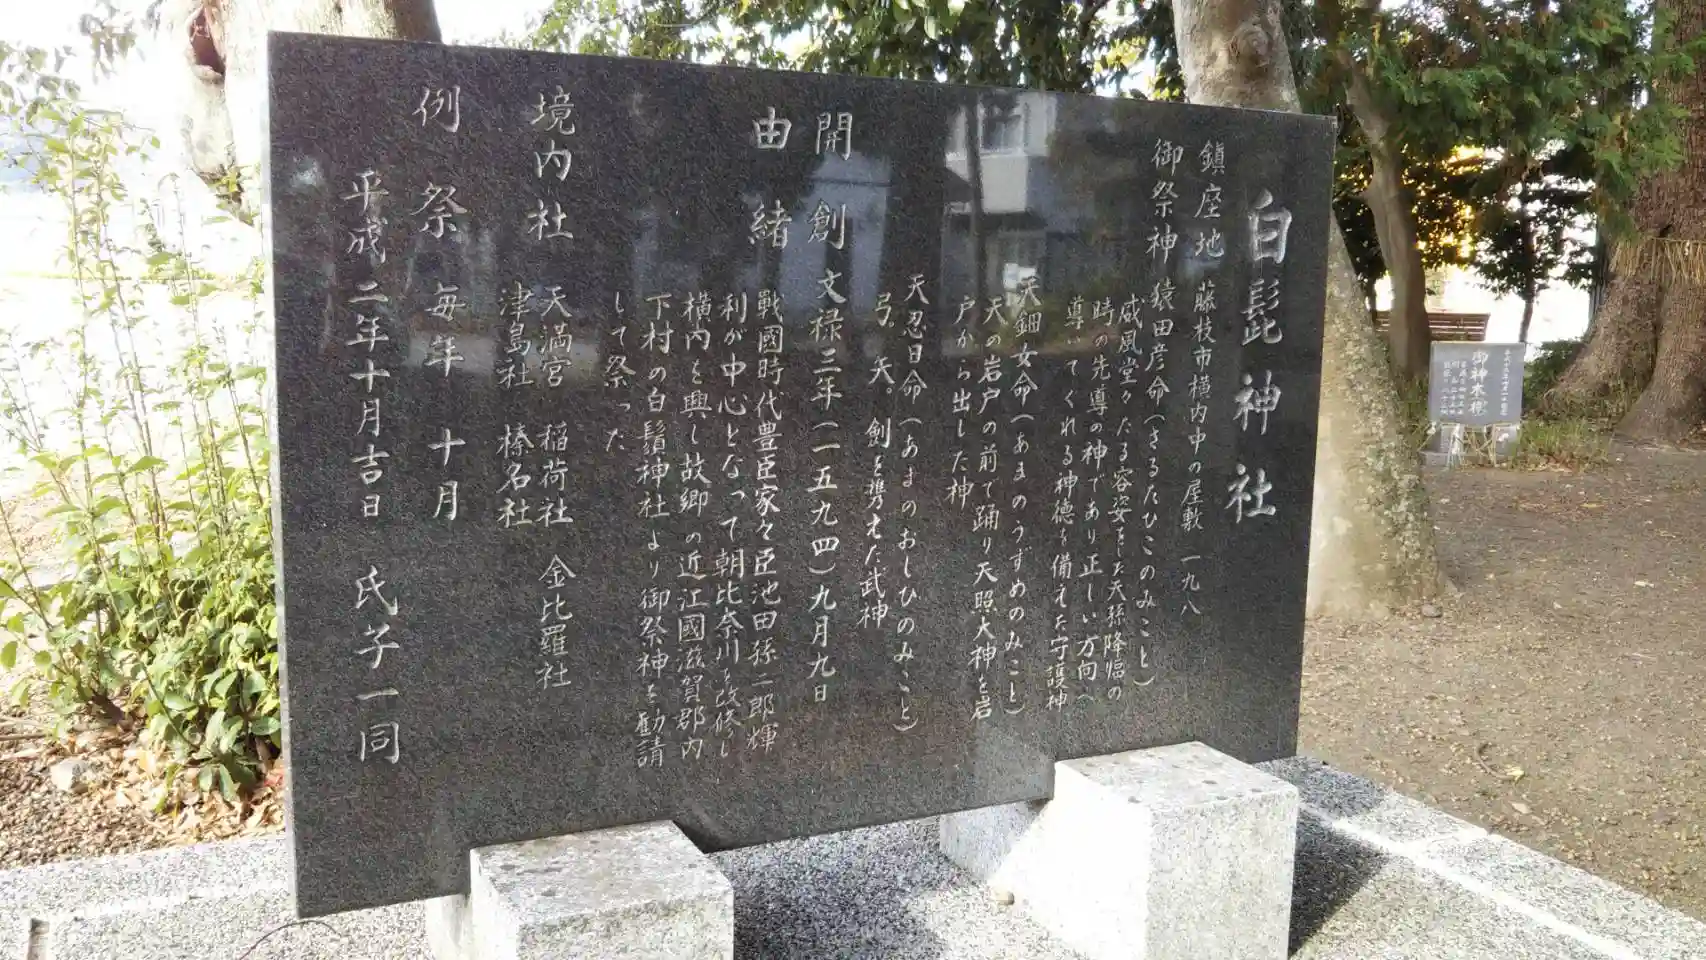 白髭神社
鎮座地 藤枝市横内中の屋敷 一九八
御祭神 猿田彦命(さるたひこのみこと)
威風堂々たる容姿をした天孫降臨の
時の先導の神であり正しい方向へ
導いてくれる神徳を備えた守護神
天鈿女命(あまのうずめのみこと)
天の岩戸の前で踊り天照大神を岩
戸から出した神
天忍日命(あまのおしひのみこと)
弓。矢。剣を携えた武神
開創 文禄三年(一五九四)九月九日
由緒 戰國時代豊臣家々臣池田孫二郎輝
利が中心となって朝比奈川を改修し
横内を興し故郷の近江國滋賀郡内
下村の白鬚神社より御祭神を勧請
して祭った
境内社 天満宮 稲荷社 金比羅社
津島社 榛名社
例祭 毎年 十月
平成二年十月吉日 氏子一同
御神木樟